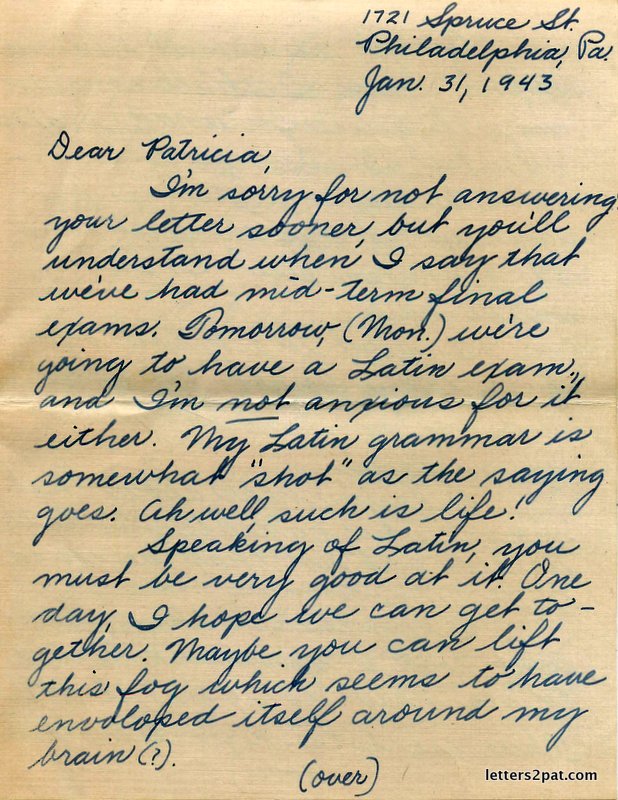 1721 Spruce St.
Philadelphia, Pa.
Jan. 31, 1943
Dear Patricia,
I'm sorry for not answering
your letter sooner, but you'll
understand when I say that
we've had mid-term final
exams. Tomorrow, (Mon.) we're
going to have a Latin exam.,
and I'm not anxious for it
either. My Latin grammar is
somewhat "shot" as the saying
goes. Ah well, such is life!
Speaking of Latin, you
must be very good at it. One
day, I hope we can get to-
gether. Maybe you can lift
this fog which seems to have
envoloped itself around my
brain (?).
(over)
letters2pat.com